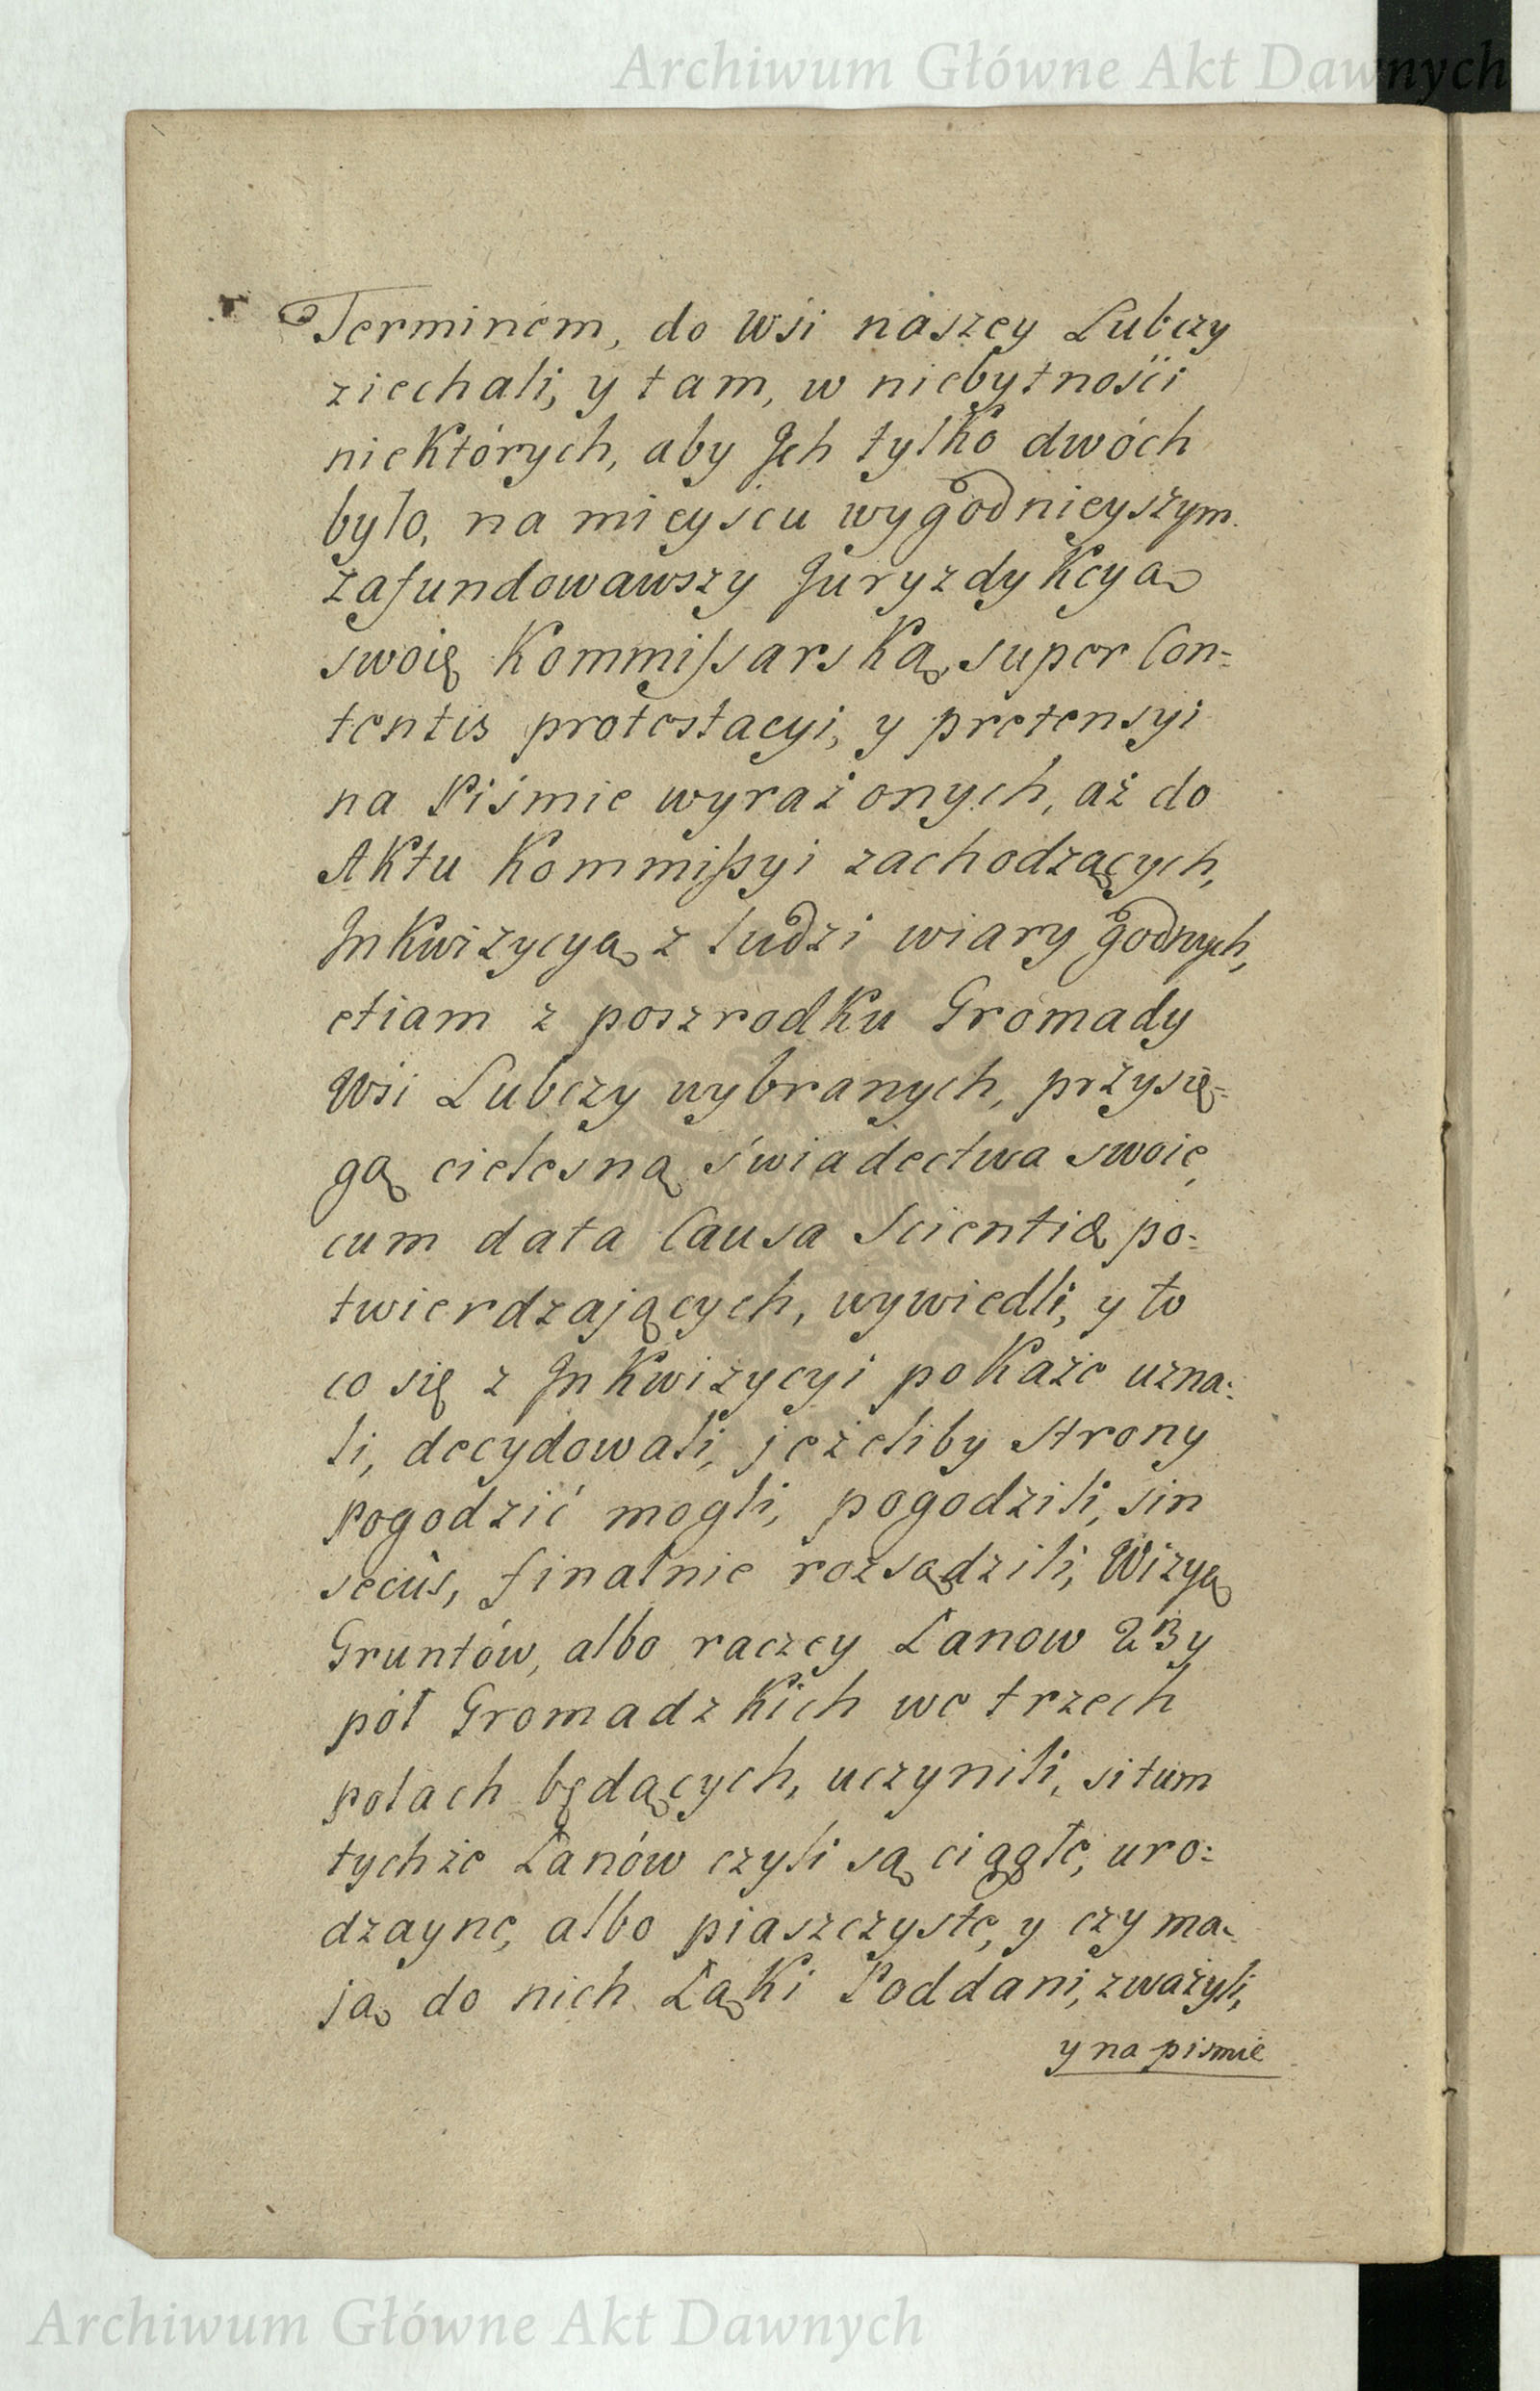 Archiwum Główne Akt Dawnych
Terminem, do Wsi naszey Lubczy
ziechali, y tam, w niebytnosci
niektórych, aby Jch tylko dwóch
było, na mieyscu wygodnieyszym
zafundowawszy Juryzdykcyą
swoię Kommissarską, super Con=
tentis protestacyi, y pretensyi
na Piśmie wyrażonych, aż do
Aktu Kommissyi zachodzących,
Jnkwizycyą z ludzi wiary godnych,
etiam z poszrodku Gromady
Wsi Lubczy wybranych, przysię=
gą cielesną świadectwa swoie,
cum data Causa Scientiæ po=
twierdzających, wywiedli, y to
co się z Jnkwizycyi pokaże uzna=
li, decydowali, jeżeliby Strony
Pogodzić mogli, pogodzili, sin
secùs, finalnie rozsądzili, Wizyą
Gruntów, albo raczey Łanow 23 y
pół Gromadzkich we trzech
Polach będących, uczynili, situm
tychże Łanów czyli są ciągłe, uro=
dzayne, albo piaszczyste, y czy ma=
ją do nich Łąki Poddani, zważyli,
y na pismie
Archiwum Główne Akt Dawnych